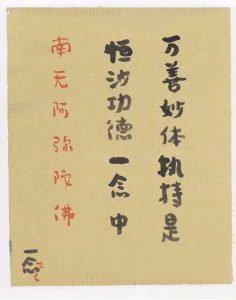 万善妙体执持是
恒沙功德一念中
南无阿弥陀佛
一念